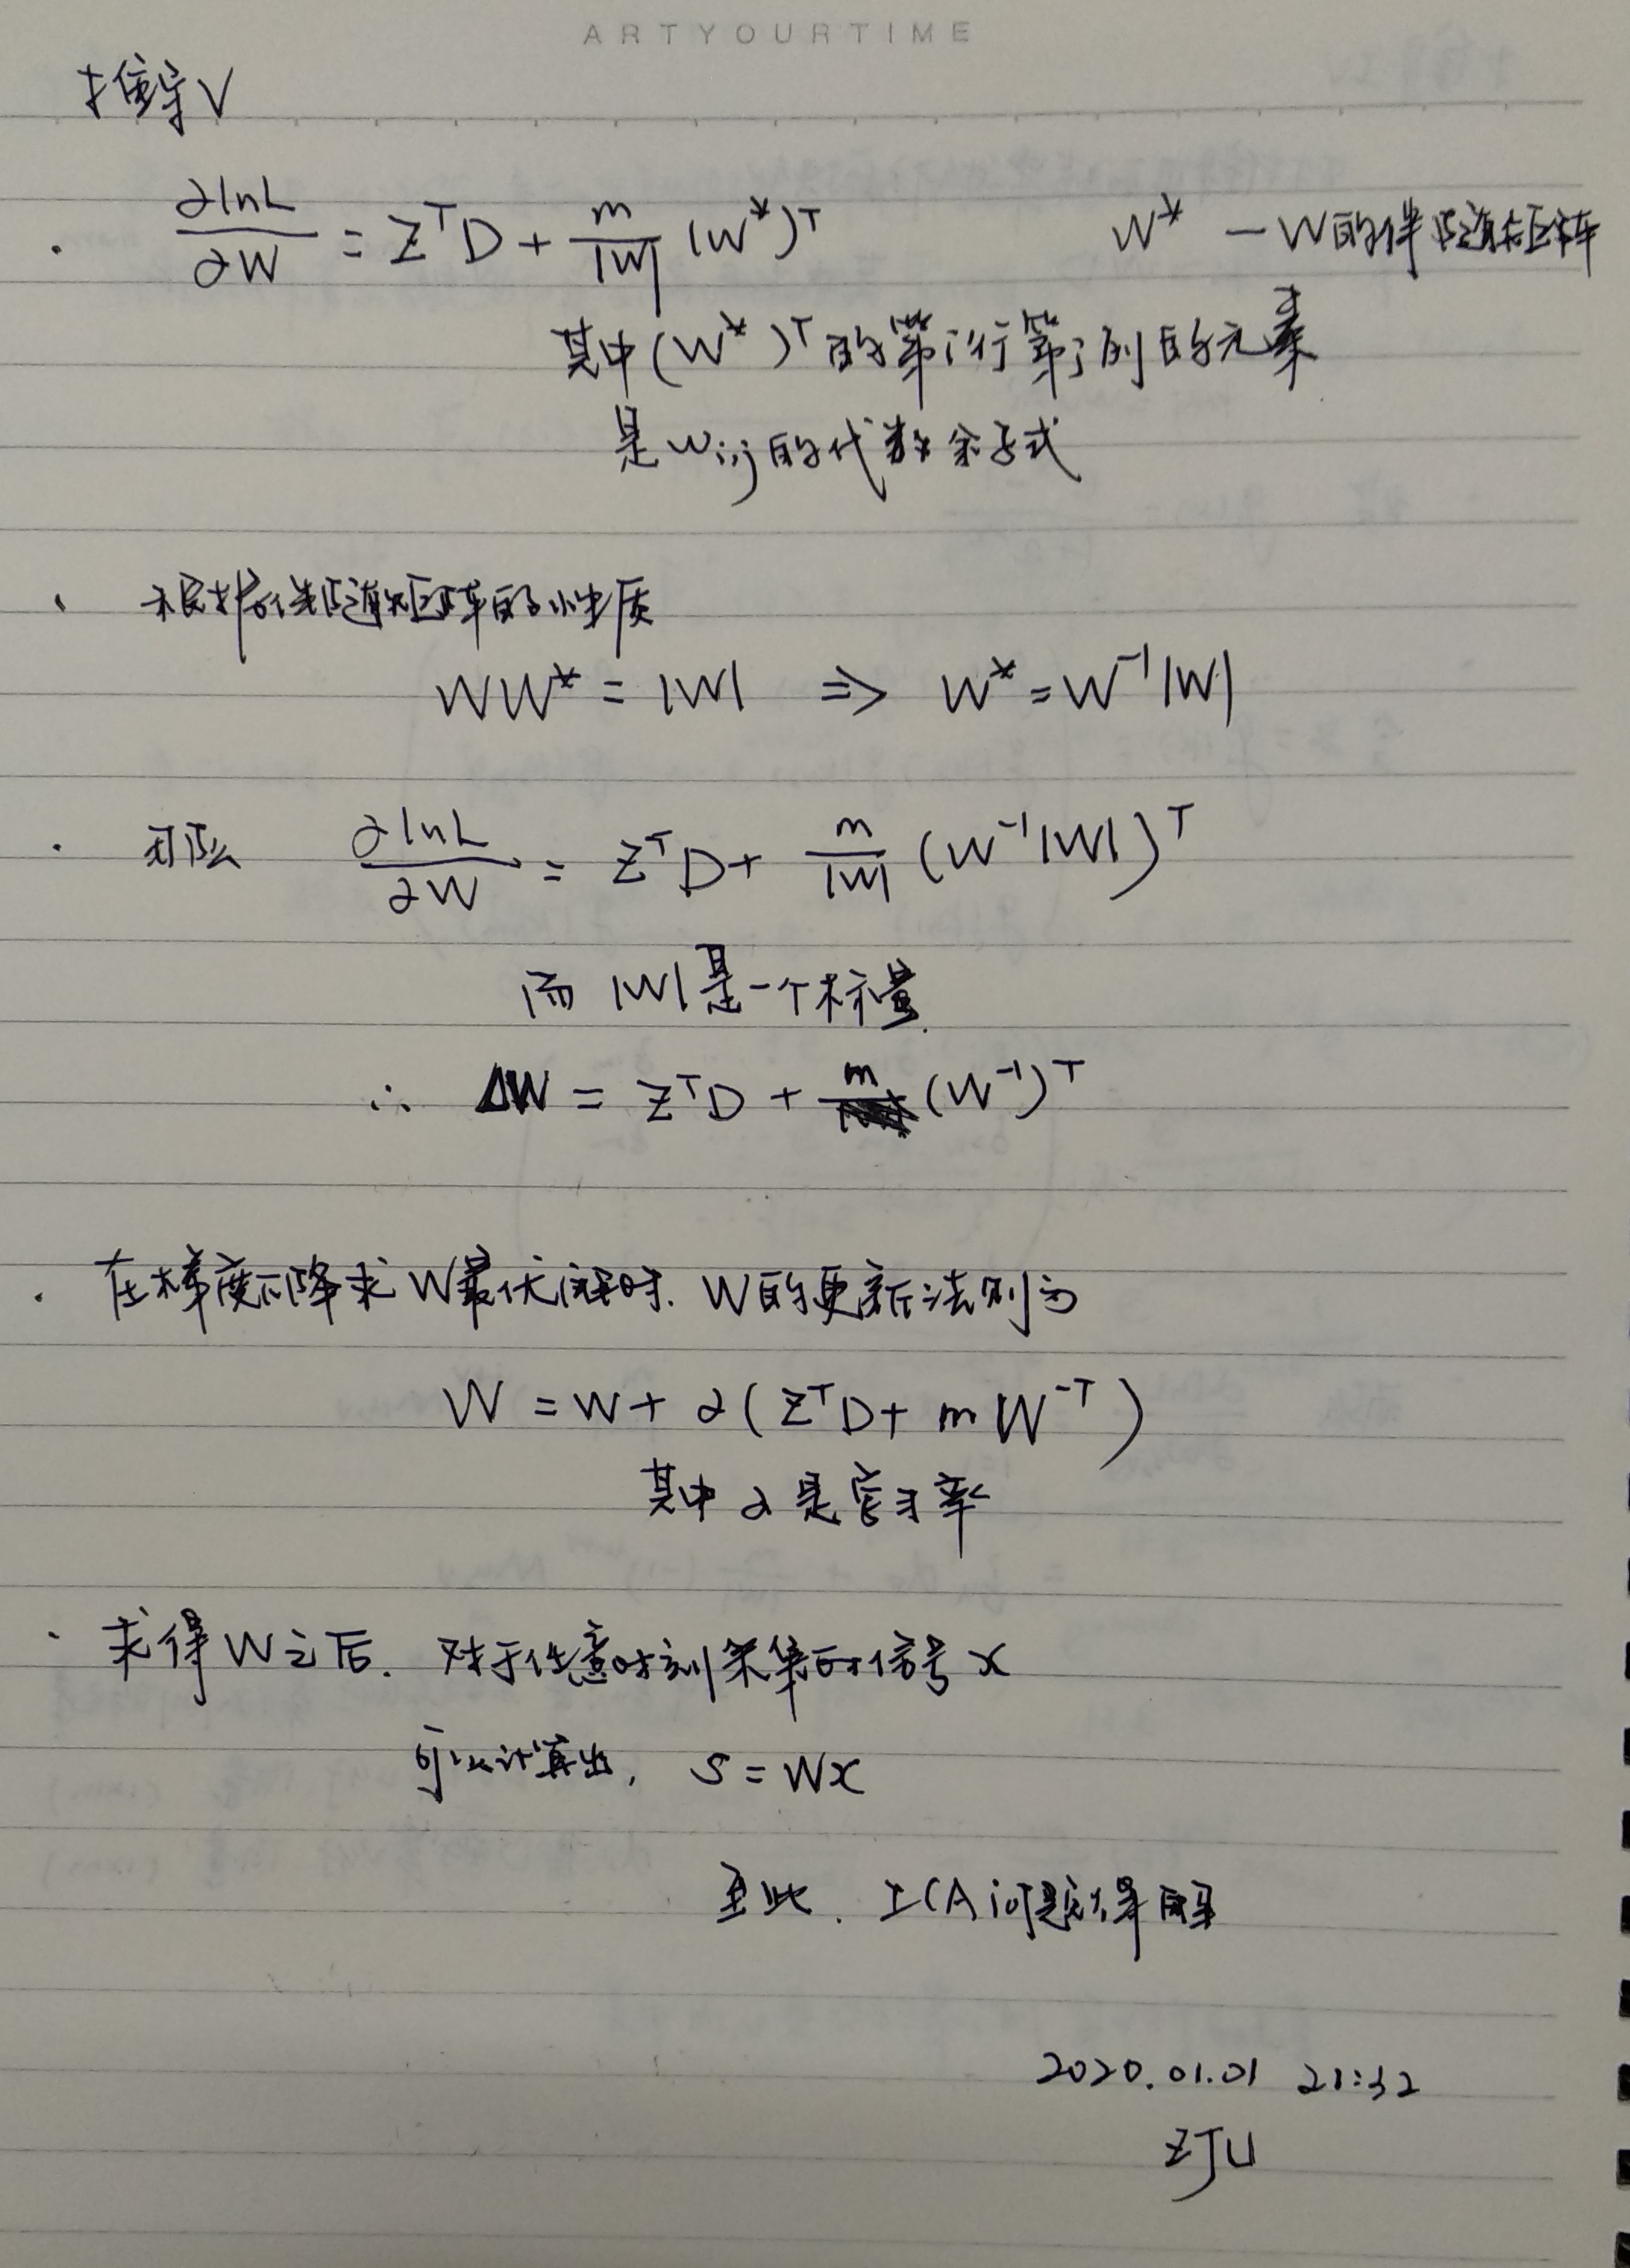 ARTYOURTIME
推导V
· ∂lnL/∂W = Z^T D + m/|W| (W*)^T W* — W的伴随矩阵
其中(W*)^T的第i行第j列的元素
是w_ij的代数余子式
· 根据伴随矩阵的性质
WW* = |W| ⇒ W* = W^-1|W|
· 那么 ∂lnL/∂W = Z^T D + m/|W| (W^-1|W|)^T
而|W|是一个标量.
∴ ΔW = Z^T D + m (W^-1)^T
· 在梯度下降求W最优解时. W的更新法则为
W = W + α(Z^T D + m W^-T)
其中α是学习率
· 求得W之后. 对于任意时刻采集的信号x
可以计算出, S = Wx
至此. ICA问题求得解
2020.01.01 21:32
ZJU